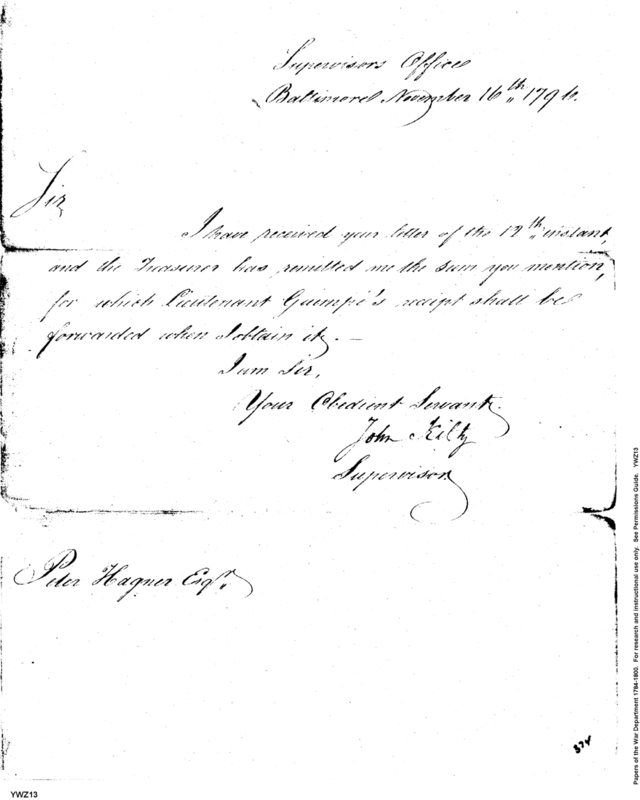 Supervisors Office
Baltimore November 16th 1796.
Sir
I have received your letter of the 12th instant,
and the Treasurer has remitted me the sum you mention,
for which Lieutenant Guimpé's receipt shall be
forwarded when I obtain it. —
I am Sir,
Your Obedient Servant.
John Kilty
Supervisor
Peter Hagner Esqr.
374
YWZ13
Papers of the War Department 1784-1800. For research and instructional use only. See Permissions Guide. YWZ13